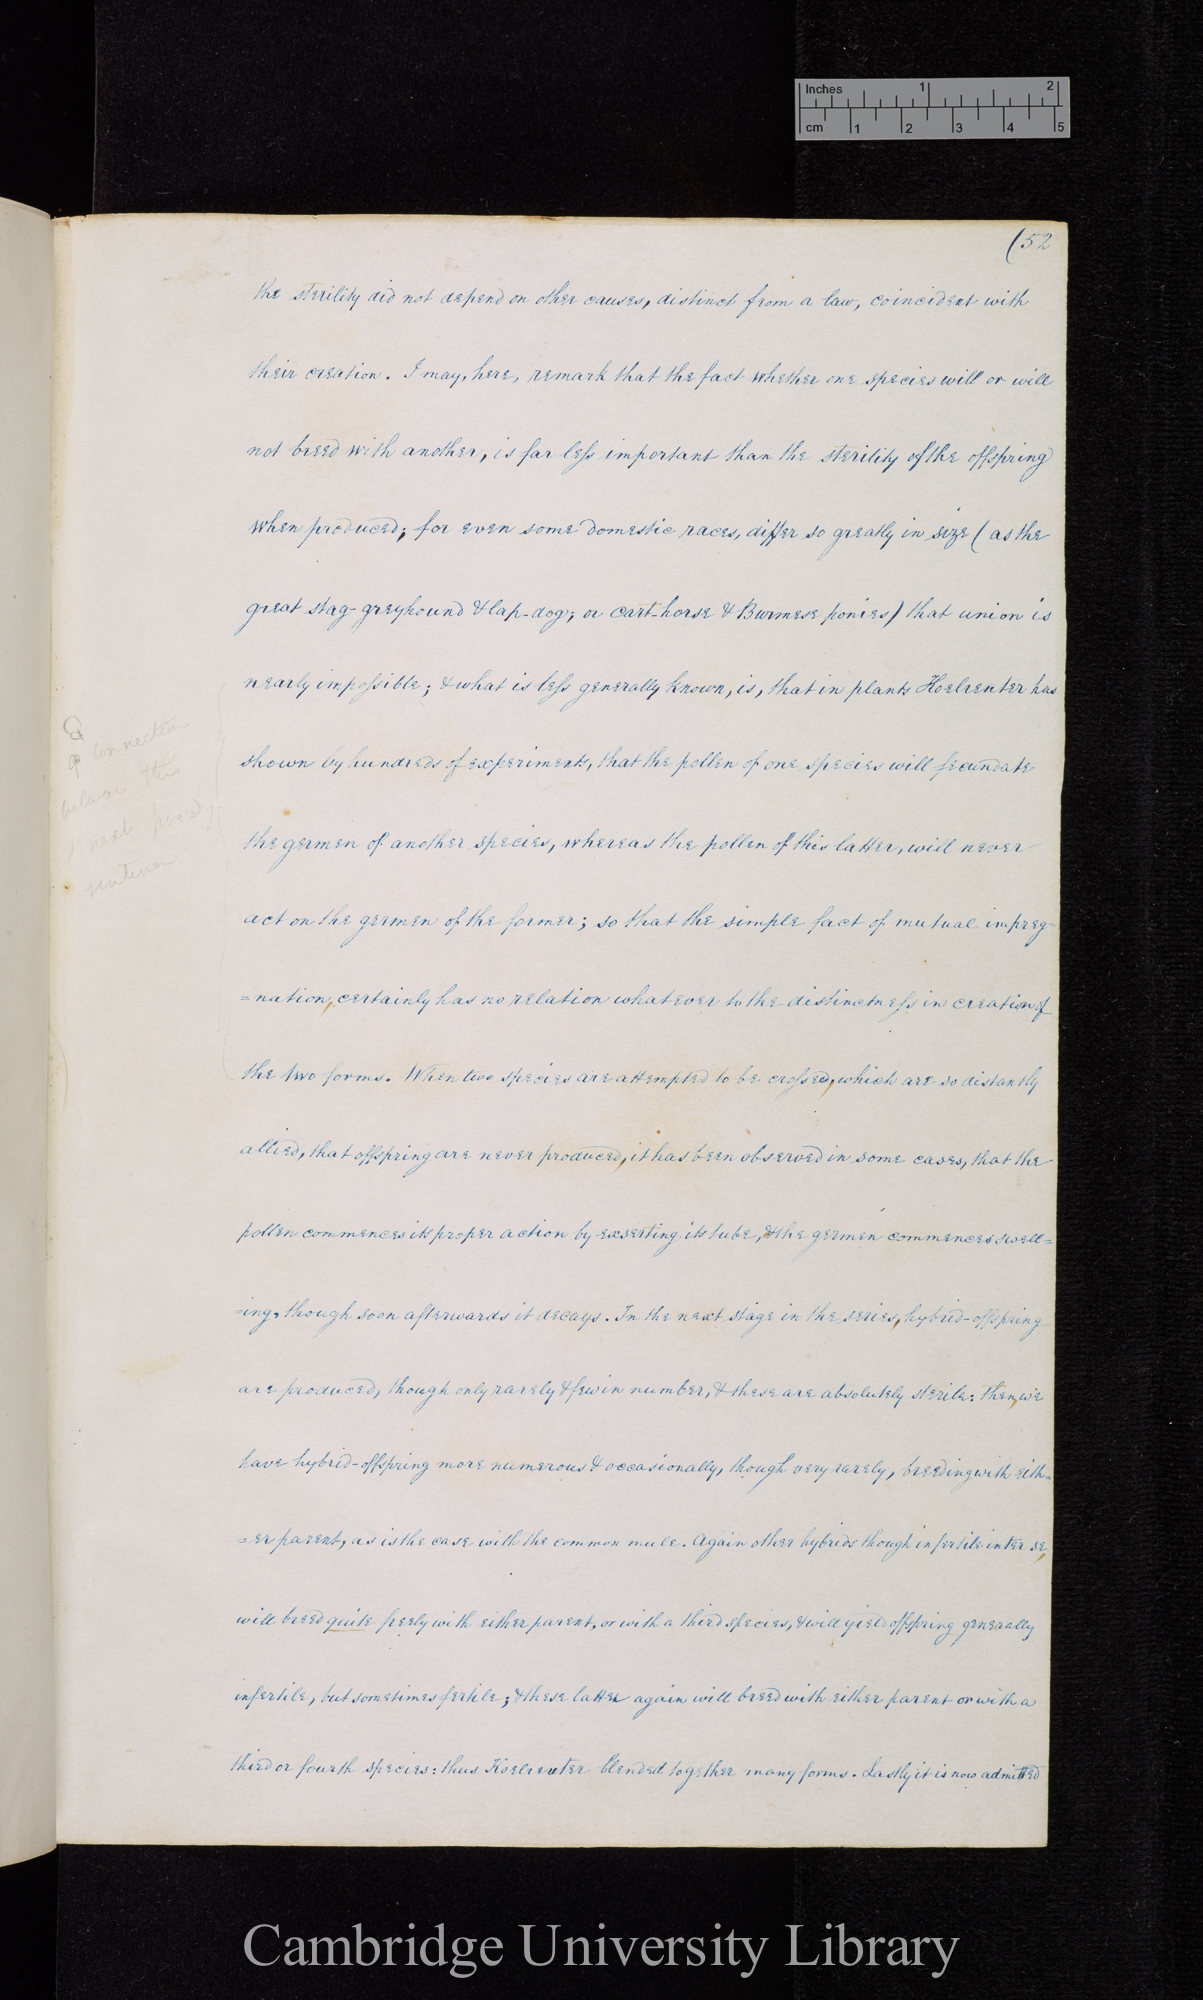 Inches 1 2
cm 1 2 3 4 5
(52
the sterility did not depend on other causes, distinct from a law, coincident with
their creation. I may, here, remark that the fact whether one species will or will
not breed with another, is far less important than the sterility of the offspring
when produced; for even some domestic races, differ so greatly in size (as the
great stag-greyhound & lap-dog; or cart-horse & Burmese ponies) that union is
nearly impossible; & what is less generally known, is, that in plants Hoelreuter has
shown by hundreds of experiments, that the pollen of one species will fecundate
the germen of another species, whereas the pollen of this latter, will never
act on the germen of the former; so that the simple fact of mutual impreg-
=nation, certainly has no relation whatever to the distinctness in creation of
the two forms. When two species are attempted to be crossed, which are so distantly
allied, that offspring are never produced, it has been observed in some cases, that the
pollen commences its proper action by exserting its tube, & the germen commences swell=
=ing, though soon afterwards it decays. In the next stage in the series, hybrid-offspring
are produced, though only rarely & few in number, & these are absolutely sterile: then, we
have hybrid-offspring more numerous & occasionally, though very rarely, breeding with eith=
=er parent, as is the case with the common mule. Again other hybrids though infertile inter se,
will breed quite freely with either parent, or with a third species, & will yield offspring generally
infertile, but sometimes fertile; & these latter again will breed with either parent or with a
third or fourth species: thus Koelreuter blended together many forms. Lastly it is now admitted
connection
this
next
sentence
Cambridge University Library